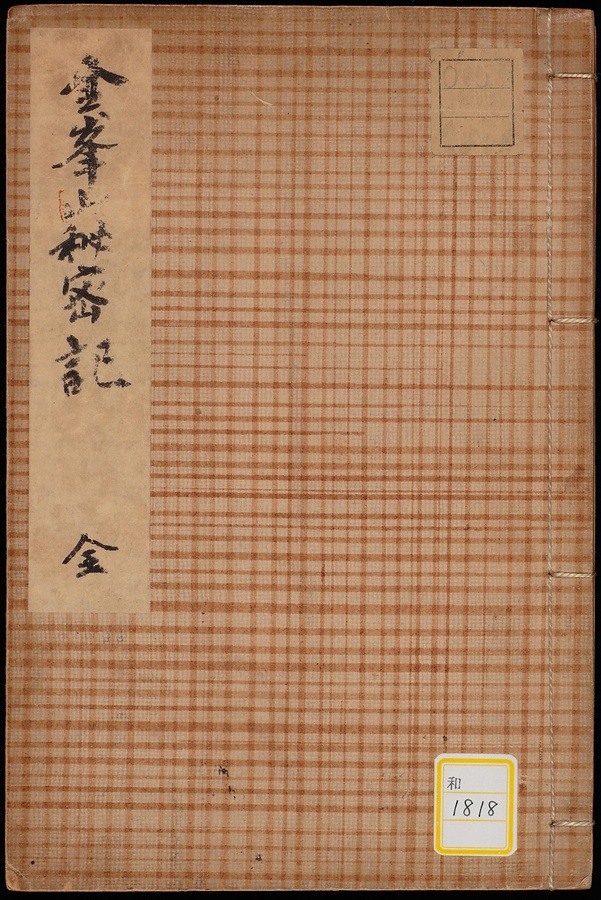 金峯山秘密記
全
和
1818